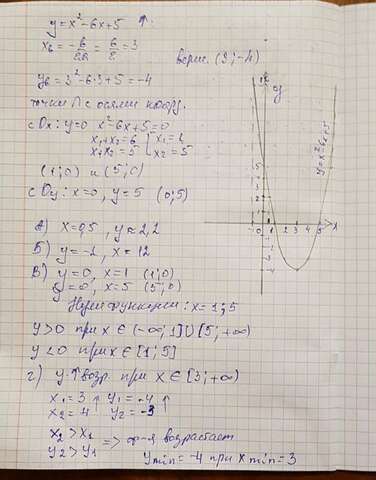 y=x²-6x+5 ↑.
x в = -6/2a = 6/2 = 3
верш. (3;-4)
y в = 3²-6·3+5=-4
точки ∩ с осями коорд.
с Ox: y=0 x²-6x+5=0
x₁+x₂=6 { x₁=1
x₁x₂=5 { x₂=5
(1;0) и (5;0)
с Oy: x=0, y=5 (0;5)
А) x=0,5, y≈2,2
Б) y=-1, x=
В) y=0, x=1 (1;0)
y=0, x=5 (5;0)
Нули функции: x=1;5
y>0 при x∈(-∞;1]∪[5;+∞)
y<0 при x∈[1;5]
г) y↑ возр. при x∈[3;+∞)
x₁=3 ↑ y₁=-4 ↑
x₂=4 y₂=-3
x₂>x₁
y₂>y₁ => ф-я возрастает
y min=-4 при x min=3
y
y=x²-6x+5
5
4
3
2
1
-1 0 1 2 3 4 5 x